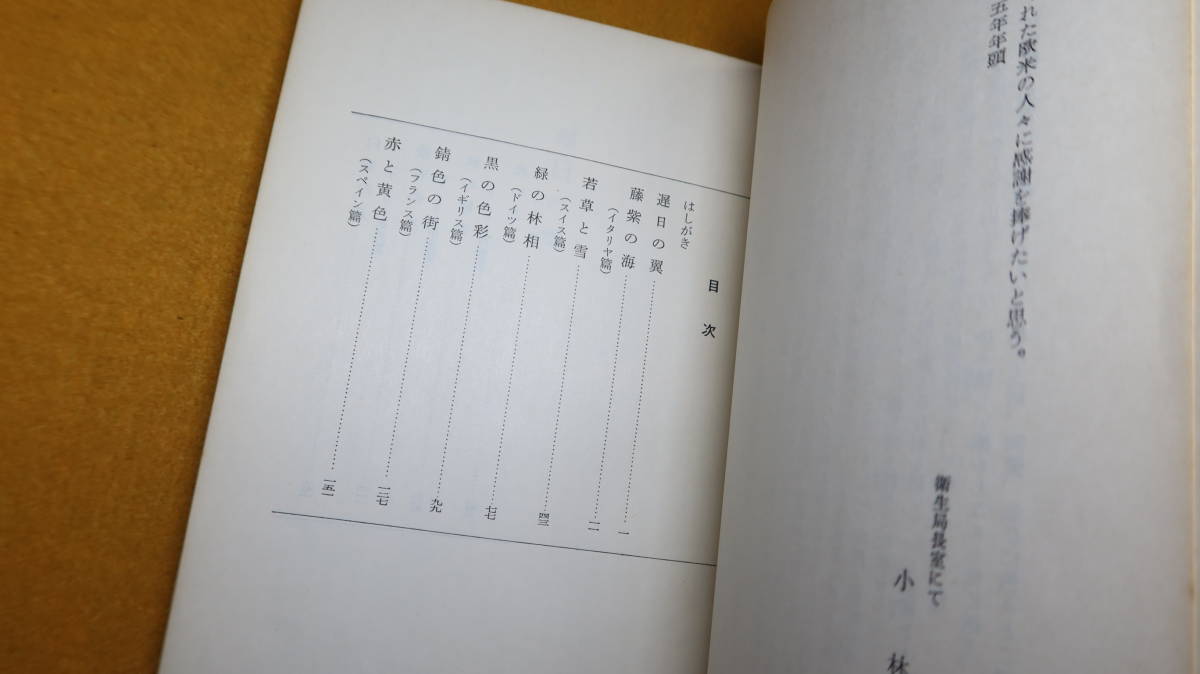 れた欧米の人々に感謝を捧げたいと思う。
五年年頭
衛生局長室にて
小林
目次
はしがき
遅日の翼……一
藤紫の海……一一
(イタリヤ篇)
若草と雪……四三
(スイス篇)
緑の林相……七七
(ドイツ篇)
黒の色彩……九九
(イギリス篇)
錆色の街……一二七
(フランス篇)
赤と黄色……一五一
(スペイン篇)